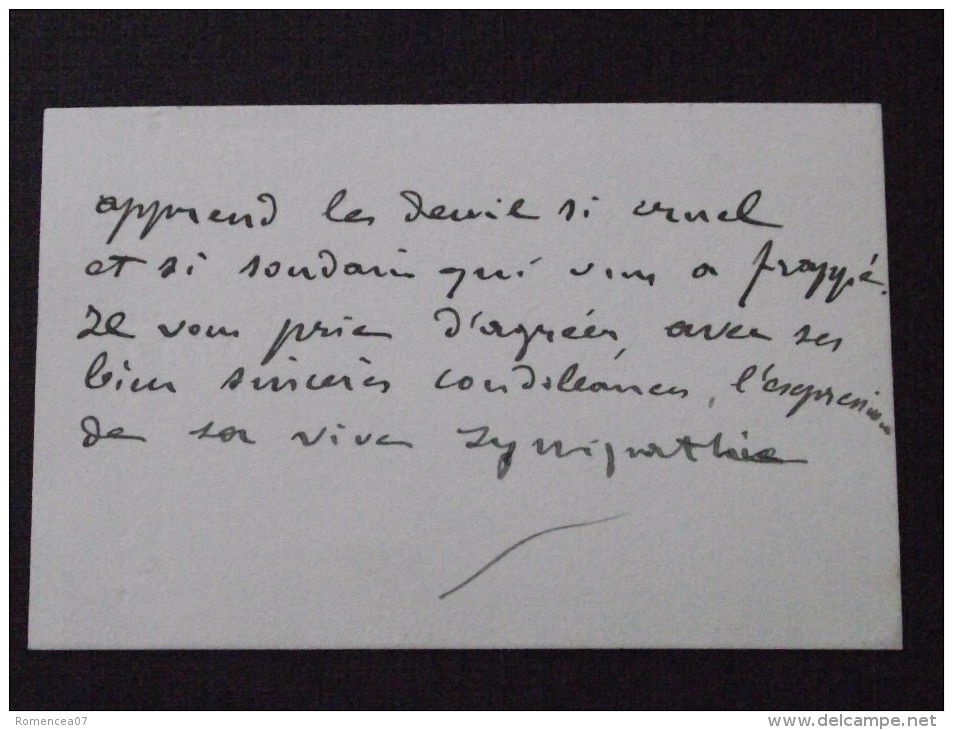 apprend le deuil si cruel
et si soudain qui vous a frappé.
Il vous prie d'agréer, avec ses
bien sincères condoléances, l'expression
de sa vive sympathie
Romencea07
www.delcampe.net